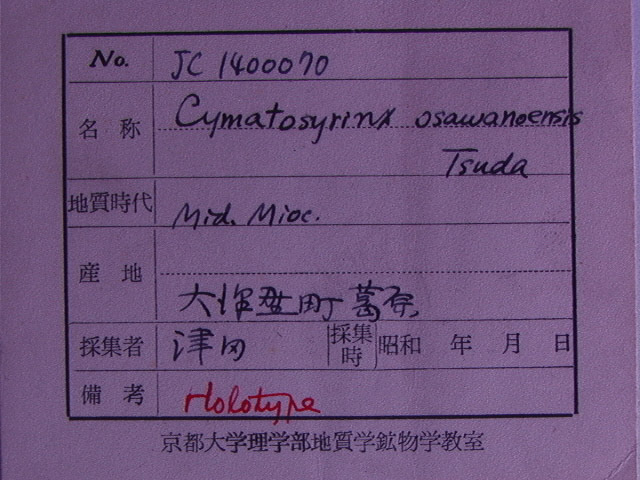 No. JC 1400070
名称 Cymatosyrinx osawanoensis
Tsuda
地質時代 Mid. Mioc.
産地
大沢野町葛原
採集者 津田 採集時 昭和 年 月 日
備考 Holotype
京都大学理学部地質学鉱物学教室